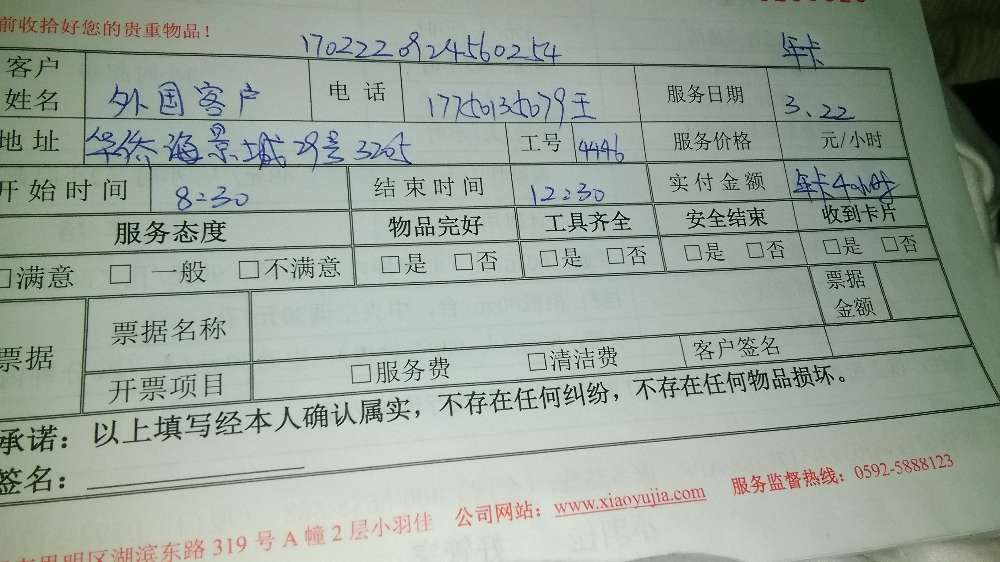 前收拾好您的贵重物品！
1702220924560254 年卡
客户姓名 外国客户 电话 王 服务日期 3.22
地址 华侨海景城 29号3205 工号 4446 服务价格 元/小时
开始时间 8:30 结束时间 12:30 实付金额 年卡4小时
服务态度 物品完好 工具齐全 安全结束 收到卡片
□满意 □ 一般 □不满意 □是 □否 □是 □否 □是 □否 □是 □否
票据 票据名称 票据金额
开票项目 □服务费 □清洁费 客户签名
承诺：以上填写经本人确认属实，不存在任何纠纷，不存在任何物品损坏。
签名：
思明区湖滨东路 319 号 A 幢 2 层小羽佳 公司网站：www.xiaoyujia.com 服务监督热线：0592-5888123